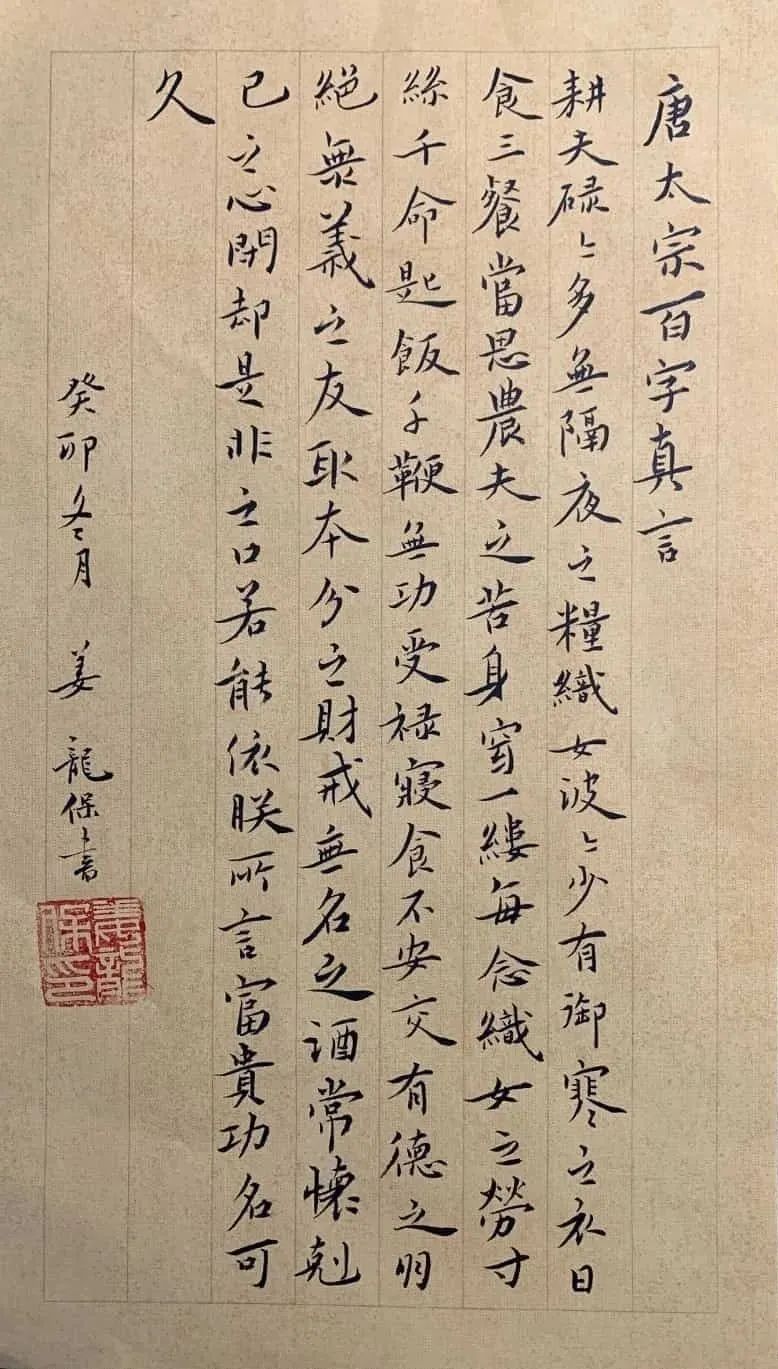 唐太宗百字真言
耕夫碌〻多無隔夜之糧織女波〻少有御寒之衣日
食三餐當思農夫之苦身穿一縷每念織女之勞寸
絲千命匙飯千鞭無功受禄寢食不安交有德之朋
絕無義之友取本分之財戒無名之酒常懷剋
己之心閉却是非之口若能依朕所言富貴功名可
久
癸卯冬月 姜龍保書
姜龍保印